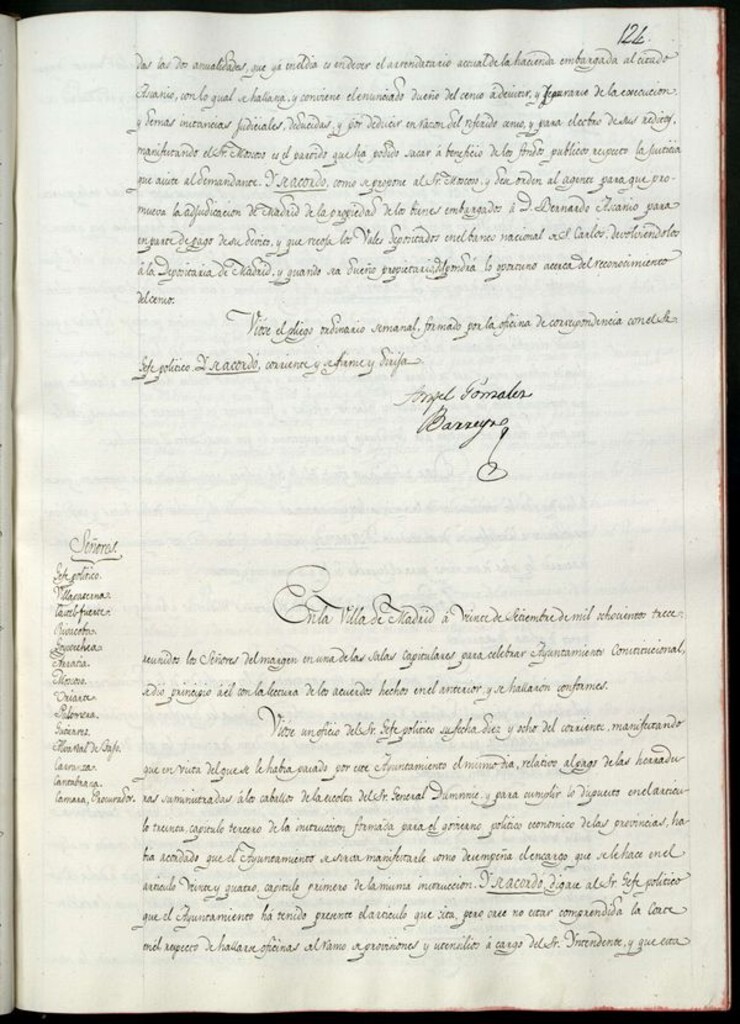 124.
das las dos anualidades, que ya en el dia es en dever el arrendatario actual de la hacienda embargada al citado
Ascanio, con lo qual se hallana, y conviene el enunciado dueño del censo a desistir, y separarse de la execucion
y demas instancias Judiciales, deducidas, y por deducir en razon del referido censo, y para el cobro de sus reditos,
manifestando el Sr. Moscoso es el partido que ha podido sacar á beneficio de los fondos publicos respecto la Justicia
que asiste al demandante. Y se acordó, como se propone al Sr. Moscoso, y dese orden al agente para que pro-
mueva la adjudicacion de Madrid de la propiedad de los bienes embargados á D. Bernardo Ascanio para
en parte de pago de su devito, y que recoja los Vales depositados en el banco nacional de S. Carlos, devolviendolos
á la Depositaria de Madrid, y quando sea dueño propietario dispondrá lo oportuno acerca del reconocimiento
del censo.
Viose el pliego ordinario semanal, formado por la oficina de correspondencia con el Sr.
Gefe politico. Y se acordó, corriente y se firme y dirija.
Angel Gonzalez
Barreyro
Señores.
Gefe politico.
Villapaterna.
Castelfuerte.
Goycochea.
Arratia.
Moscoso.
Uriarte.
Palomera.
Gutierrez.
Carranza.
Cantabrana.
Camara, Procurador.
En la Villa de Madrid á Veinte de Setiembre de mil ochocientos trece:
reunidos los Señores del margen en una de las Salas capitulares para celebrar Ayuntamiento Constitucional,
se dió principio á él con la lectura de los acuerdos hechos en el anterior, y se hallaron conformes.
Viose un oficio del Sr. Gefe politico su fecha diez y ocho del corriente, manifestando
que en vista del que se le habia pasado por este Ayuntamiento el mismo dia, relativo al pago de las herradu-
ras suministradas á los caballos de la escolta del Sr. General y para cumplir lo dispuesto en el articu-
lo treinta, capitulo tercero de la instruccion formada para el govierno politico economico de las provincias, ha-
bia acordado que el Ayuntamiento se sirva manifestarle como desempeña el encargo que se le hace en el
articulo Veinte y quatro, capitulo primero de la misma instruccion. Y se acordó, digase al Sr. Gefe politico
que el Ayuntamiento há tenido presente el articulo que cita, pero cree no estar comprendida la Corte
en él respecto de hallarse oficinas al ramo de provisiones y utensilios á cargo del Sr. Yntendente, y que esta